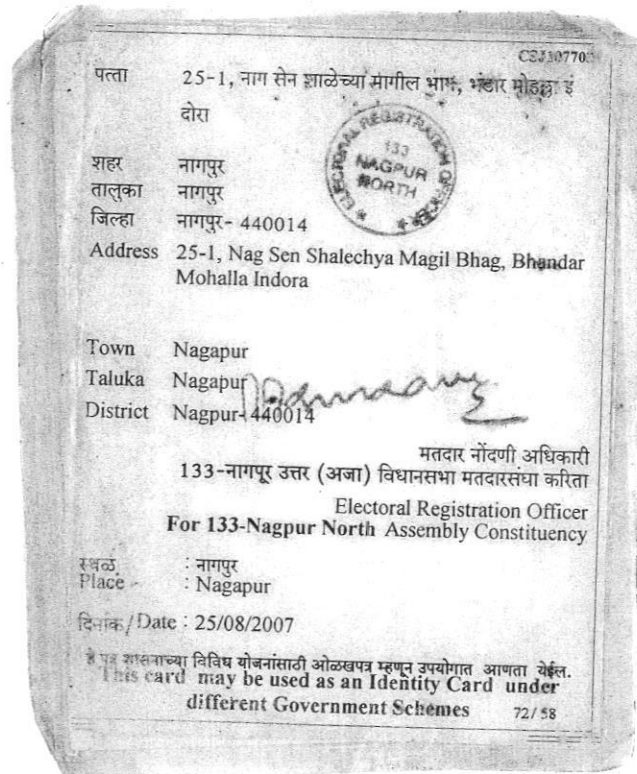 पत्ता 25-1, नाग सेन शाळेच्या मागील भाग, भंडार मोहल्ला इं
दोरा
ELECTORAL REGISTRATION OFFICER
133
NAGPUR
NORTH
शहर नागपुर
तालुका नागपुर
जिल्हा नागपुर- 440014
Address 25-1, Nag Sen Shalechya Magil Bhag, Bhandar
Mohalla Indora
Town Nagapur
Taluka Nagapur
District Nagpur- 440014
मतदार नोंदणी अधिकारी
133-नागपूर उत्तर (अजा) विधानसभा मतदारसंघा करिता
Electoral Registration Officer
For 133-Nagpur North Assembly Constituency
स्थळ : नागपुर
Place : Nagapur
दिनांक/Date : 25/08/2007
हे पत्र शासनाच्या विविध योजनांसाठी ओळखपत्र म्हणून उपयोगात आणता येईल.
This card may be used as an Identity Card under
different Government Schemes 72/58